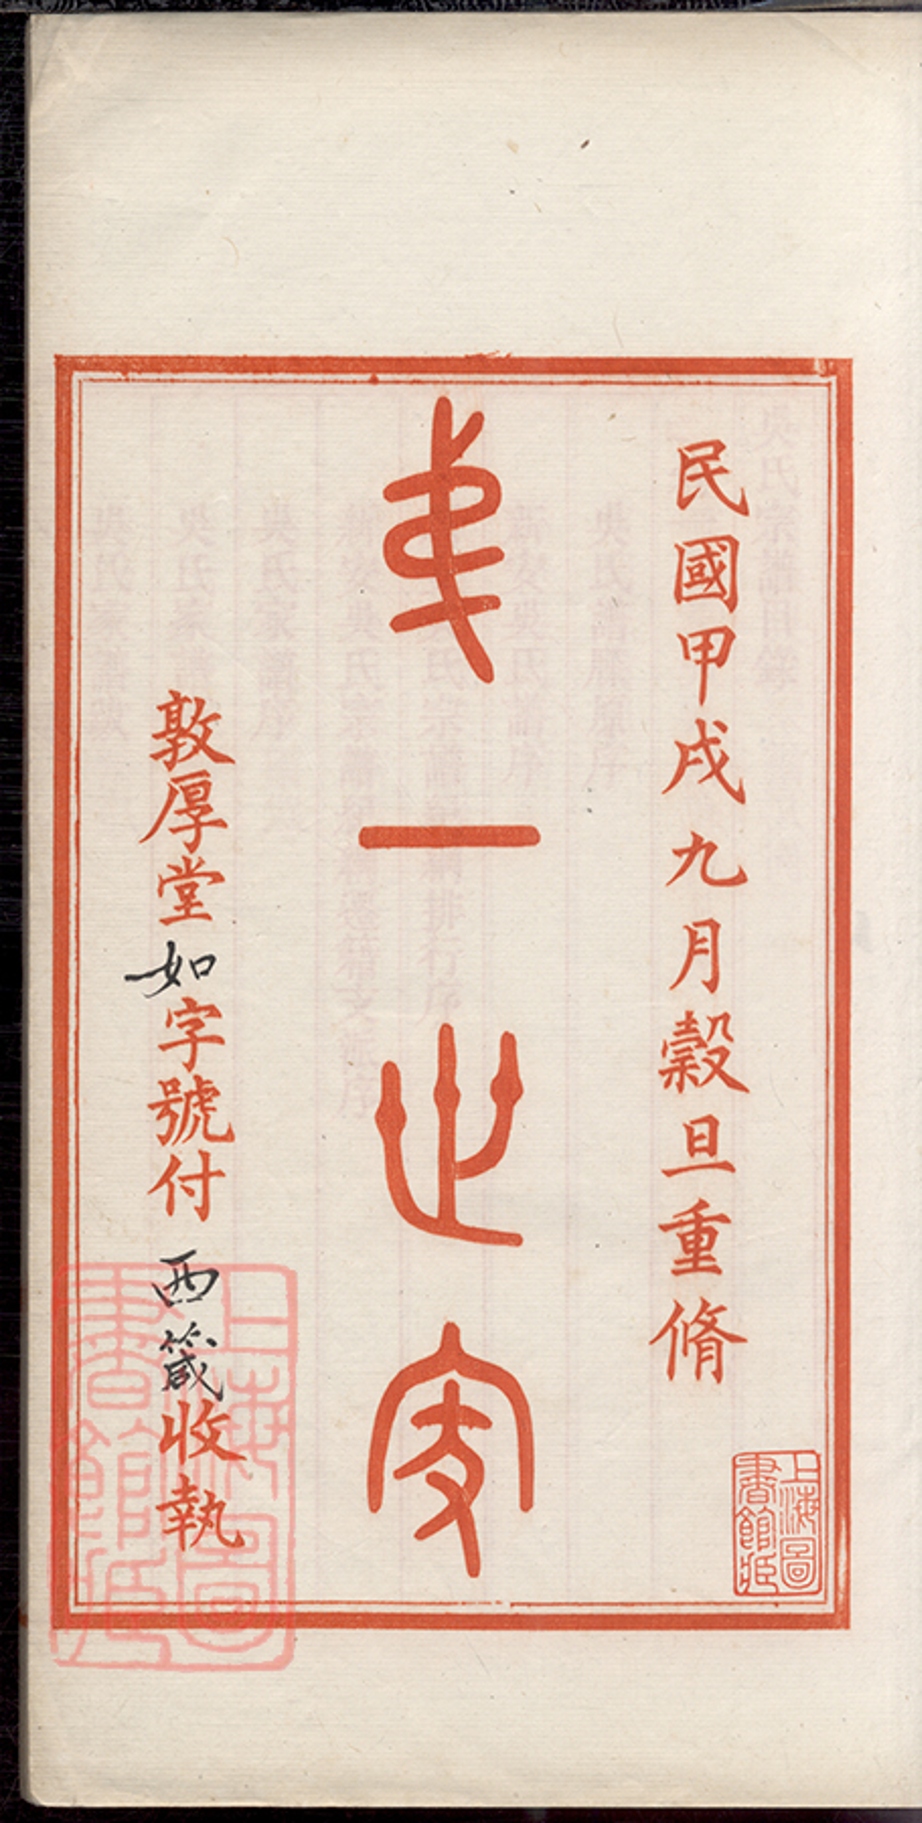 民國甲戌九月穀旦重脩
一
敦厚堂如字號付西箴收執
上海圖書館藏
上海圖書館藏